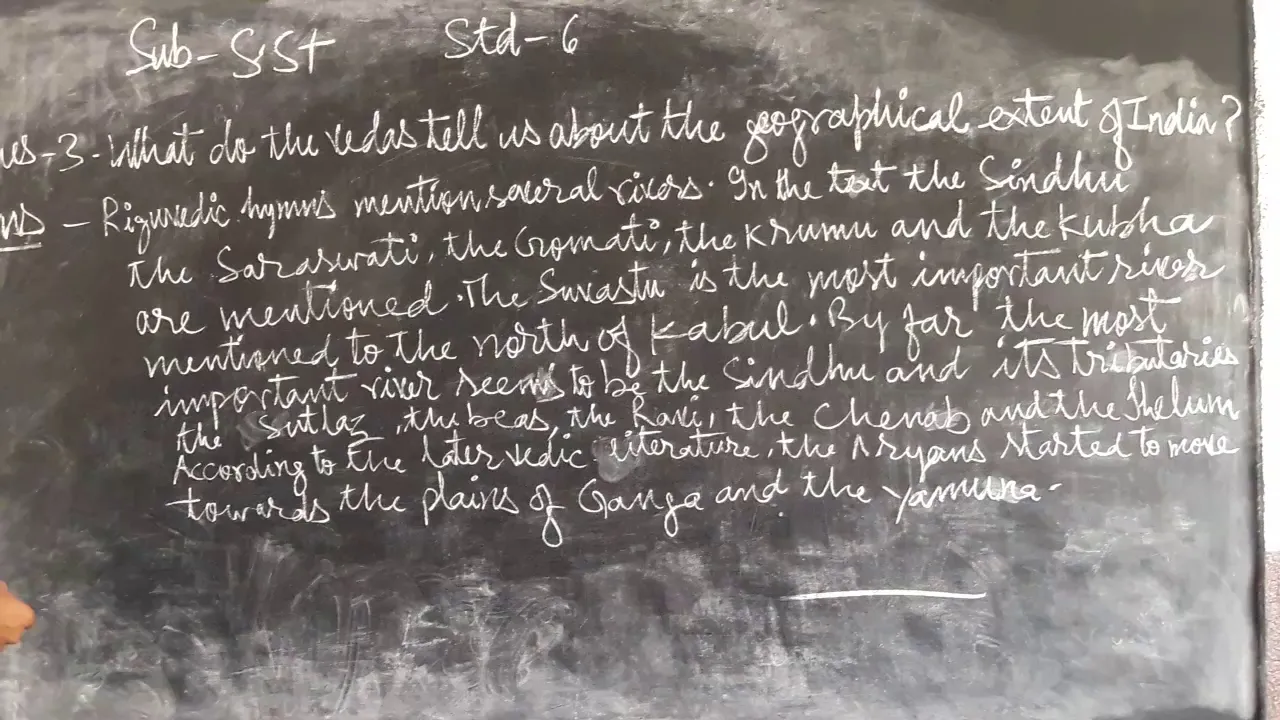 Sub - S.St Std - 6
ues - 3 - What do the vedas tell us about the geographical extent of India?
ns - Rigvedic hymns mention several rivers. In the text the Sindhu
the Saraswati, the Gomati, the Krumu and the Kubha
are mentioned. The Suvastu is the most important river
mentioned to the north of Kabul. By far the most
important river seems to be the Sindhu and its tributaries
the Sutlaz, the beas, the Ravi, the Chenab and the Jhelum
According to the later vedic literature, the Aryans started to move
towards the plains of Ganga and the Yamuna.